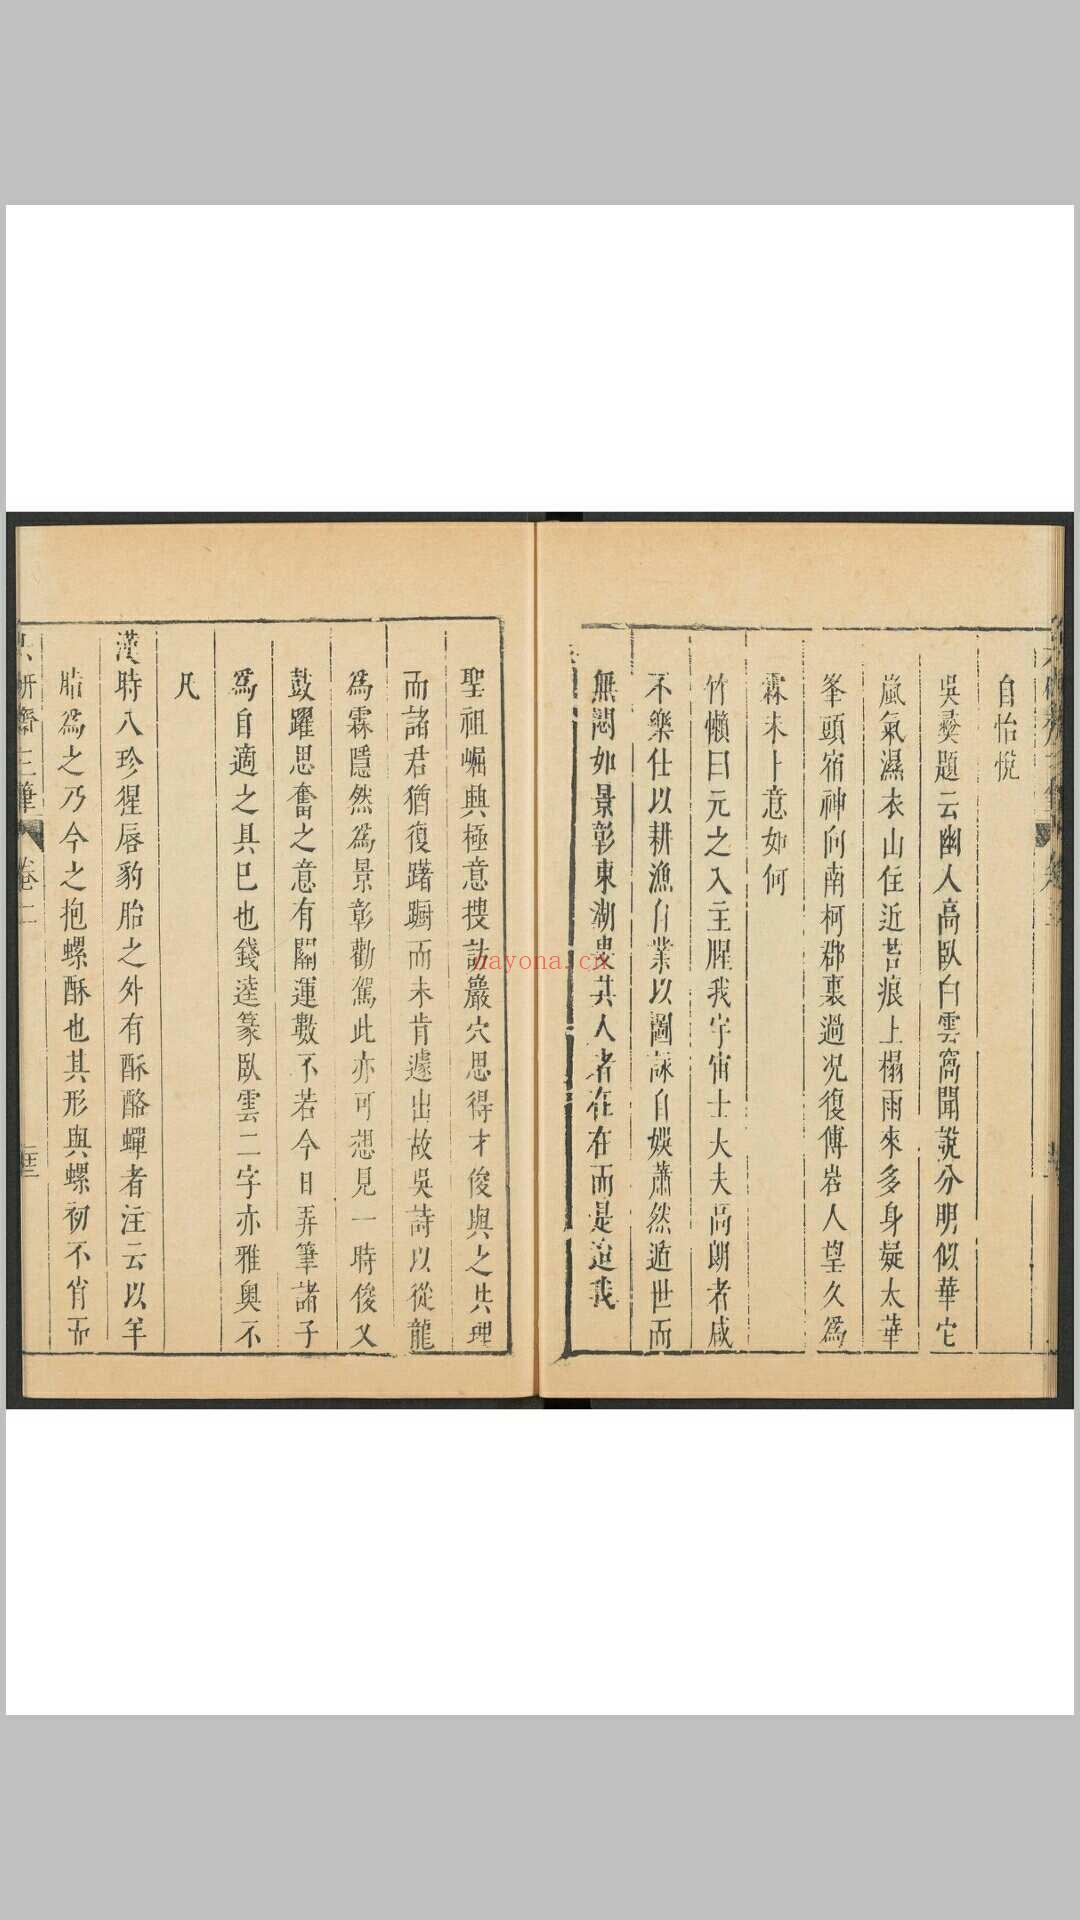 自怡悅
吳彛題云幽人高臥白雲窩聞說分明似華它
嵐氣濕衣山住近苔痕上榻雨來多身疑太華
峯頭宿神向南柯郡裏過況復傅岩人望久爲
霖未卜意如何
竹懶曰元之入主腥我宇宙士大夫高朗者咸
不樂仕以耕漁自業以圖詠自娛蕭然遁世而
無悶如景彰東湖叟其人者在在而是迨我
聖祖崛興極意搜訪巖穴思得才俊與之共理
而諸君猶復躇蹰而未肯遽出故吳詩以從龍
爲霖隱然爲景彰勸駕此亦可想見一時俊乂
鼓躍思奮之意有關運數不若今日弄筆諸子
爲自適之具巳也錢逵篆臥雲二字亦雅奧不
凡
漢時八珍猩唇豹胎之外有酥酪蟬者注云以羊
脂爲之乃今之抱螺酥也其形與螺初不肖而
研齋三筆 卷二
nayona.cn